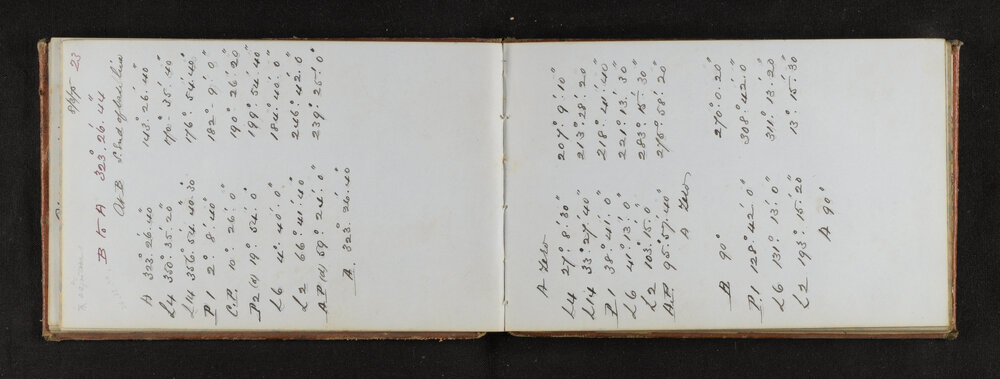 8/4/5 23
B to A 323° 26' 44"
At B S. End of base line
A 323° 26' 40" 143° 26' 40"
L4 350° 35' 20" 170° 35' 40"
L14 356° 54' 40" 30 176° 54' 40"
P1 2° 8' 40" 182° 9' 0"
C.P. 10° 26' 0" 190° 26' 20"
P2 (a) 19° 54' 0" 199° 54' 40"
L6 4° 40' 0" 184° 40' 0"
L2 66° 41' 40" 246° 42' 0"
A.P. (a) 59° 24' 0" 239° 25' 0"
A 323° 26' 40"
A Zero
L4 27° 8' 30" 207° 9' 10"
L14 33° 27' 40" 213° 28' 20"
P1 38° 41' 0" 218° 41' 40"
L6 41° 13' 0" 221° 13' 30"
L2 103° 15' 0" 283° 15' 30"
A.P. 95° 57' 40" 275° 58' 20"
A Zero
B 90° 270° 0' 20"
P.1 128° 42' 0" 308° 42' 0"
L6 131° 13' 0" 311° 13' 20"
L2 193° 15' 20" 13° 15' 30"
A 90°